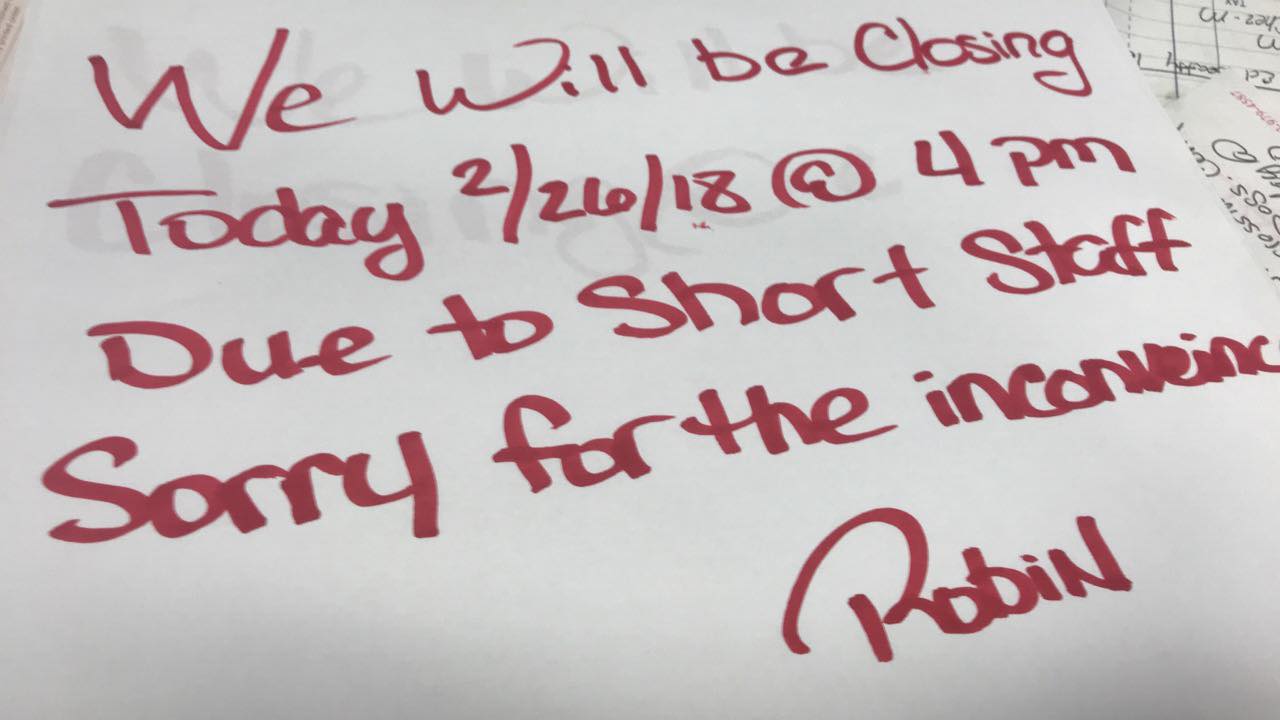 We Will be Closing
Today 2/26/18 @ 4 pm
Due to Short Staff
Sorry for the inconveinc
Robin